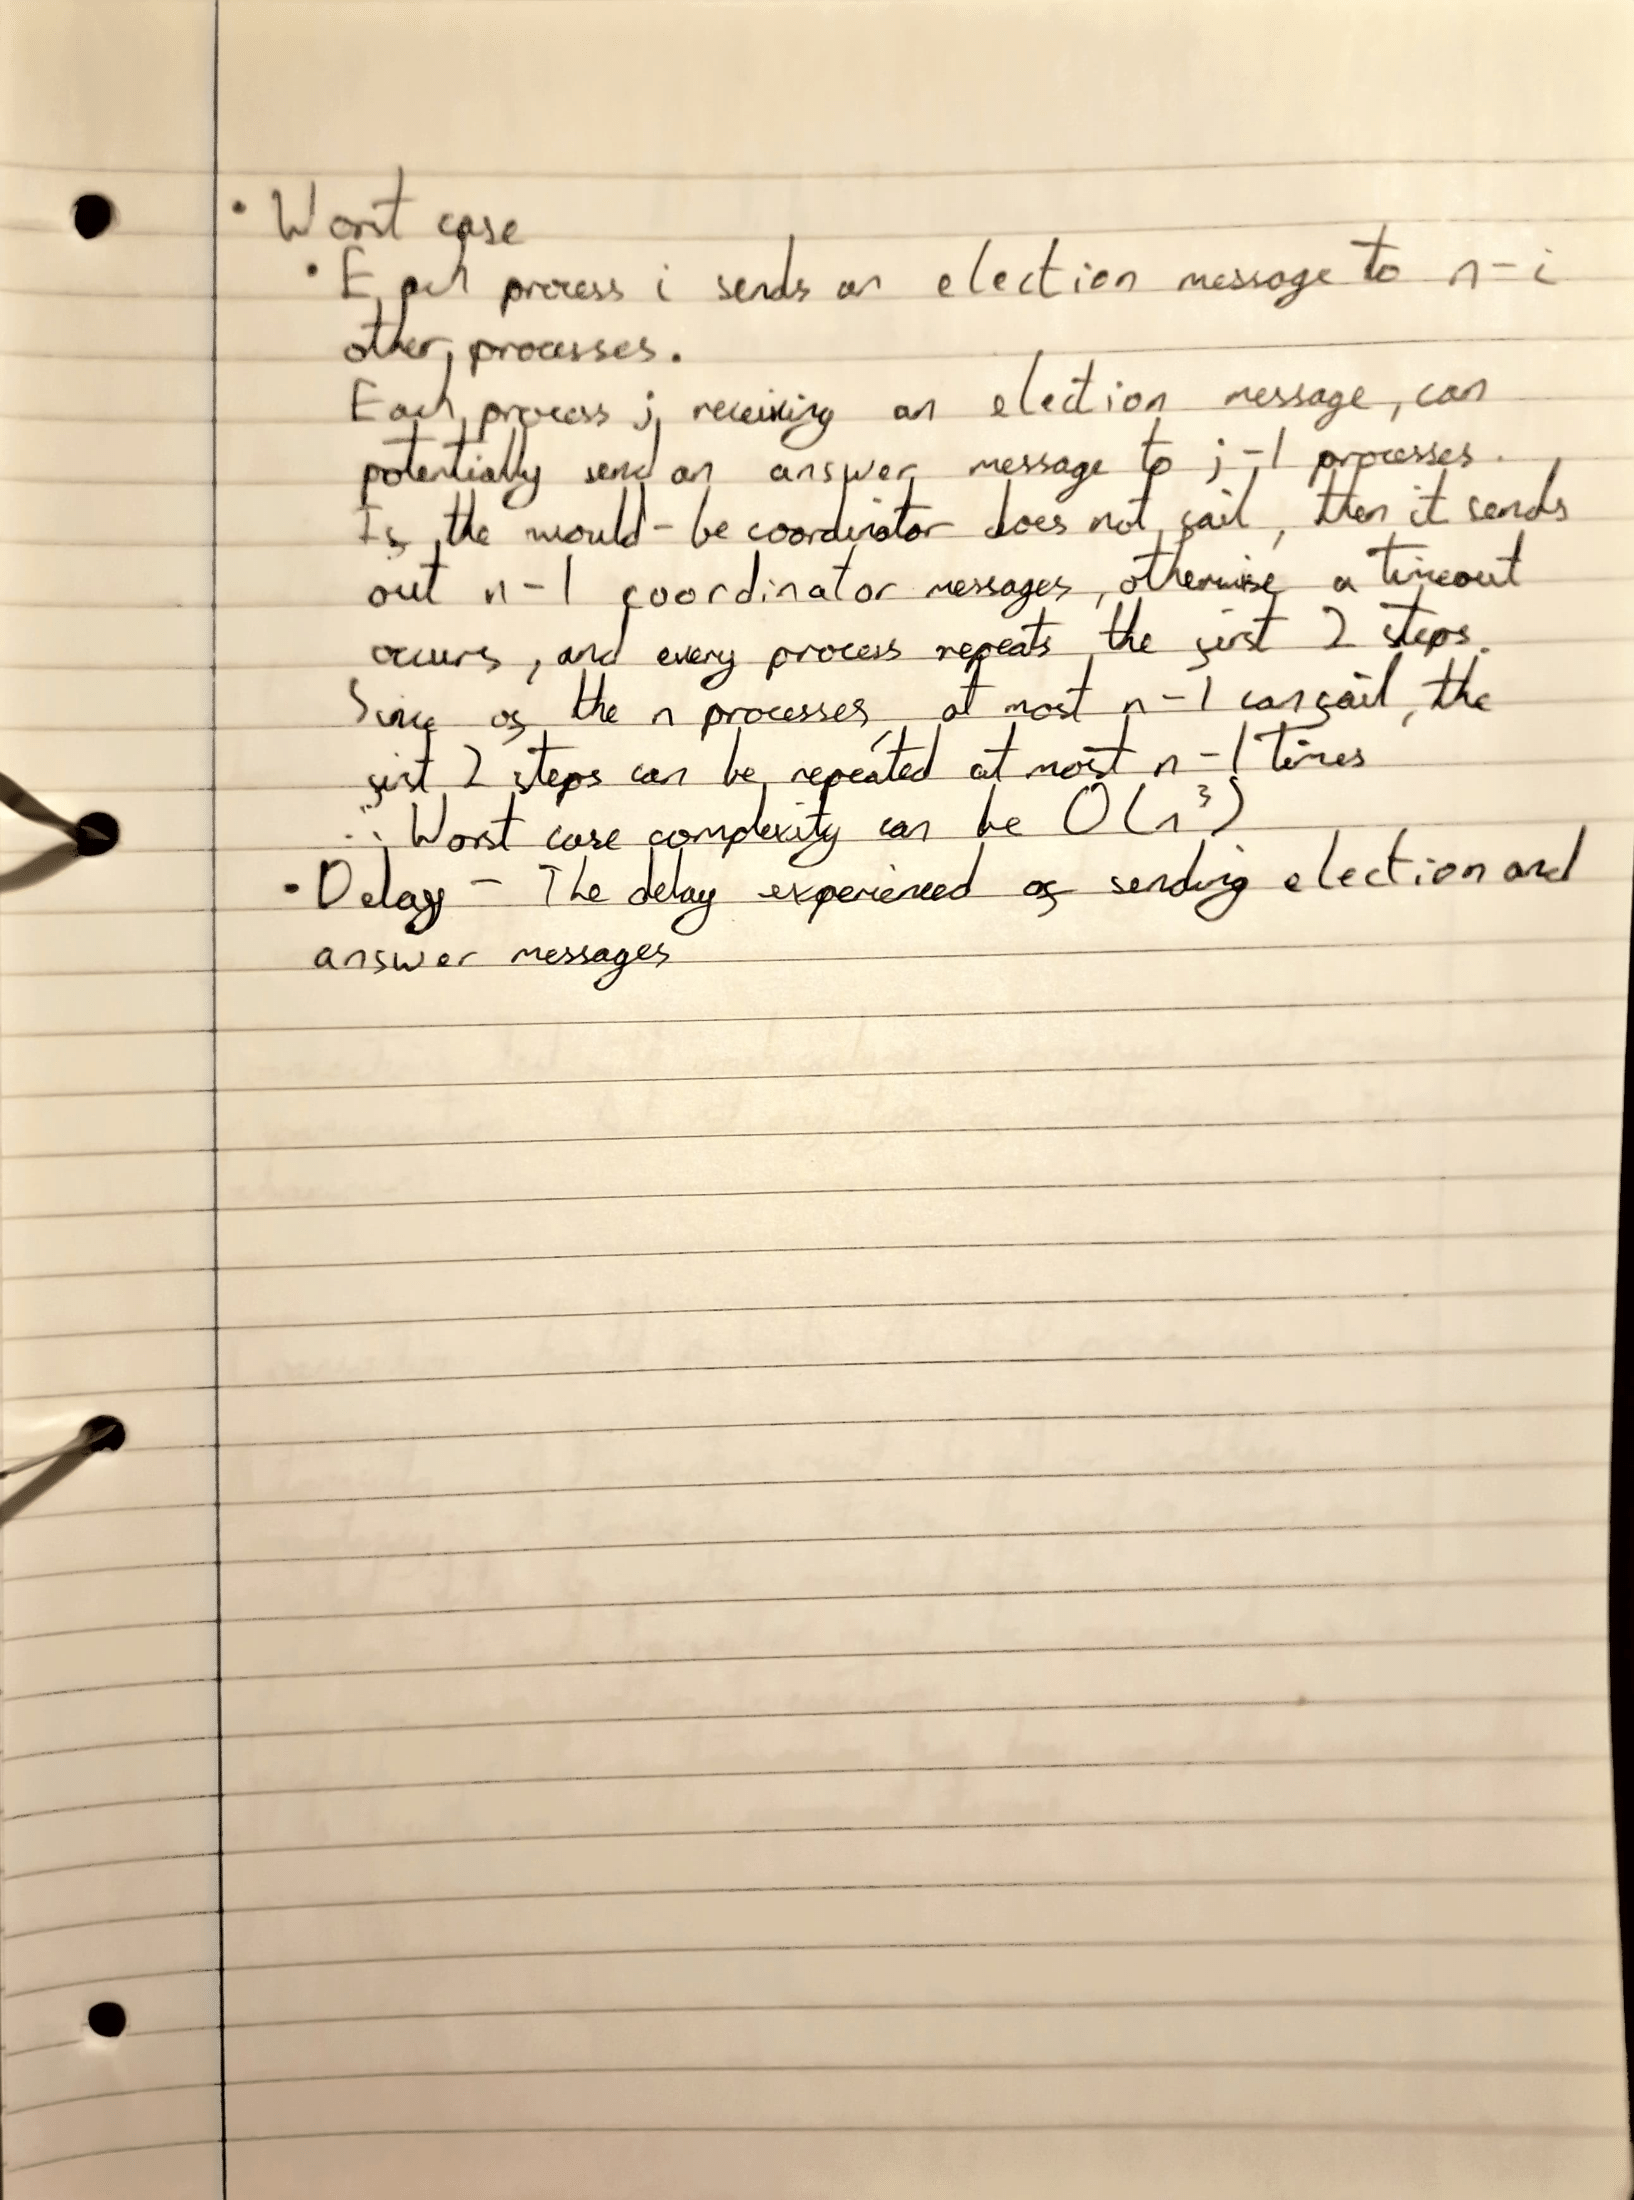 • Worst case
• Each process i sends an election message to n-i
other processes.
Each process j receiving an election message, can
potentially send an answer message to j-1 processes.
If the would-be coordinator does not fail, then it sends
out n-1 coordinator messages, otherwise a timeout
occurs, and every process repeats the first 2 steps.
Since of the n processes, at most n-1 can fail, the
first 2 steps can be repeated at most n-1 times
∴ Worst case complexity can be O(n³)
• Delay - The delay experienced of sending election and
answer messages